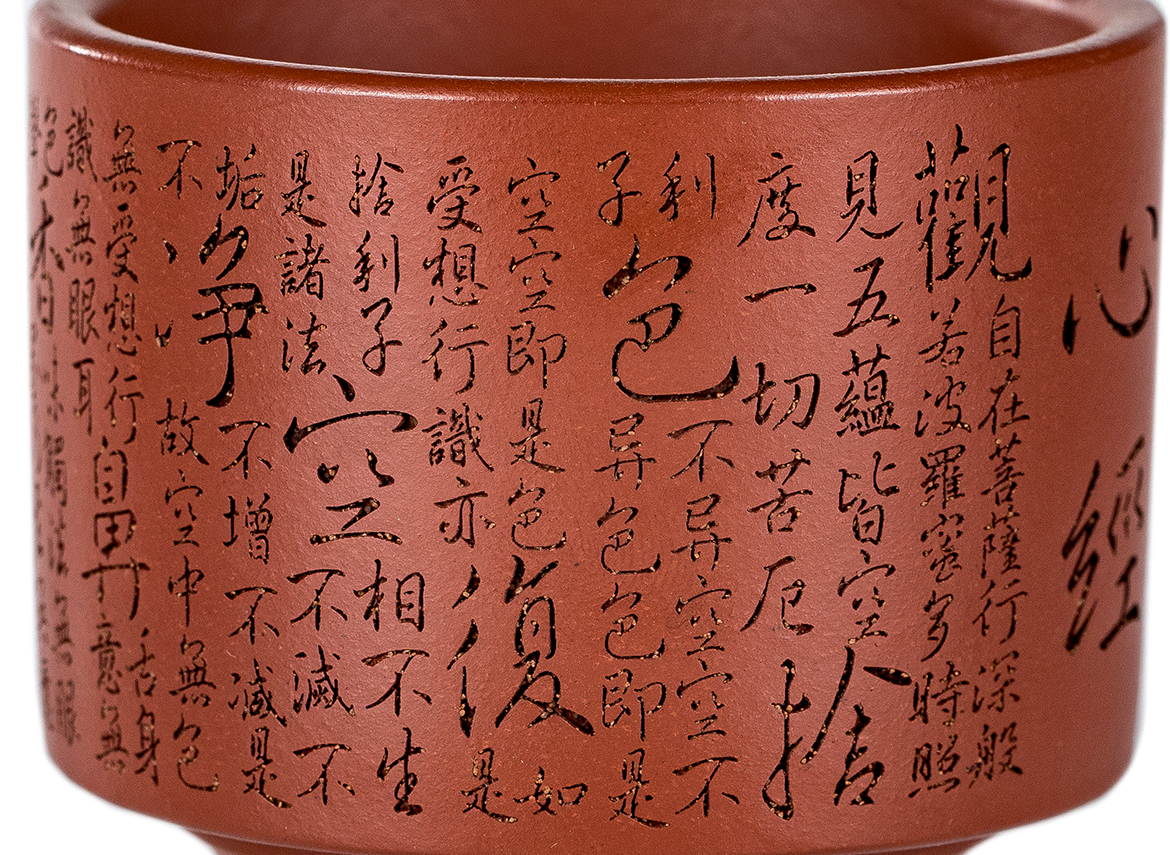 心經
觀自在菩薩行深般
若波羅蜜多時照
見五蘊皆空
度一切苦厄捨
利
子色不异空空不
异色色即是
空空即是色
受想行識亦復如
是
捨利子
是諸法空相不生
不滅不
垢
不淨不增不減是
故空中無色
無受想行
識無眼耳鼻舌身
意無
色
香味觸法無眼